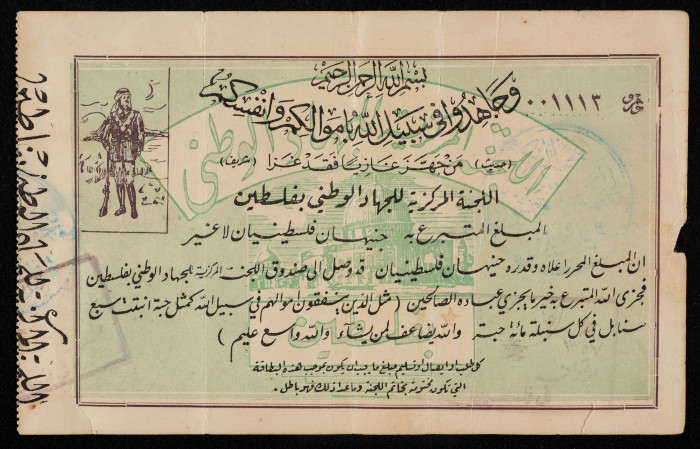 بسم الله الرحمن الرحيم
وجاهدوا في سبيل الله باموالكم وانفسكم
نمرة ٠٠١١١٣
(حديث) من جهز غازيا فقد غزا (شريف)
اللجنة المركزية للجهاد الوطني بفلسطين
المبلغ المتبرع به جنيهان فلسطينيان لا غير
ان المبلغ المحرر اعلاه وقدره جنيهان فلسطينيان قد وصل الى صندوق اللجنة المركزية للجهاد الوطني بفلسطين
فجزى الله المتبرع به خير ما يجزي عباده الصالحين ( مثل الذين ينفقون اموالهم في سبيل الله كمثل حبة انبتت سبع
سنابل في كل سنبلة مائة حبة والله يضاعف لمن يشاء والله واسع عليم )
كل طلب او ايصال او تسليم مبلغ ما يجب ان يكون بموجب هذه البطاقة
التي تكون مختومة بخاتم اللجنة وما عدا ذلك فهو باطل .
فلسطين